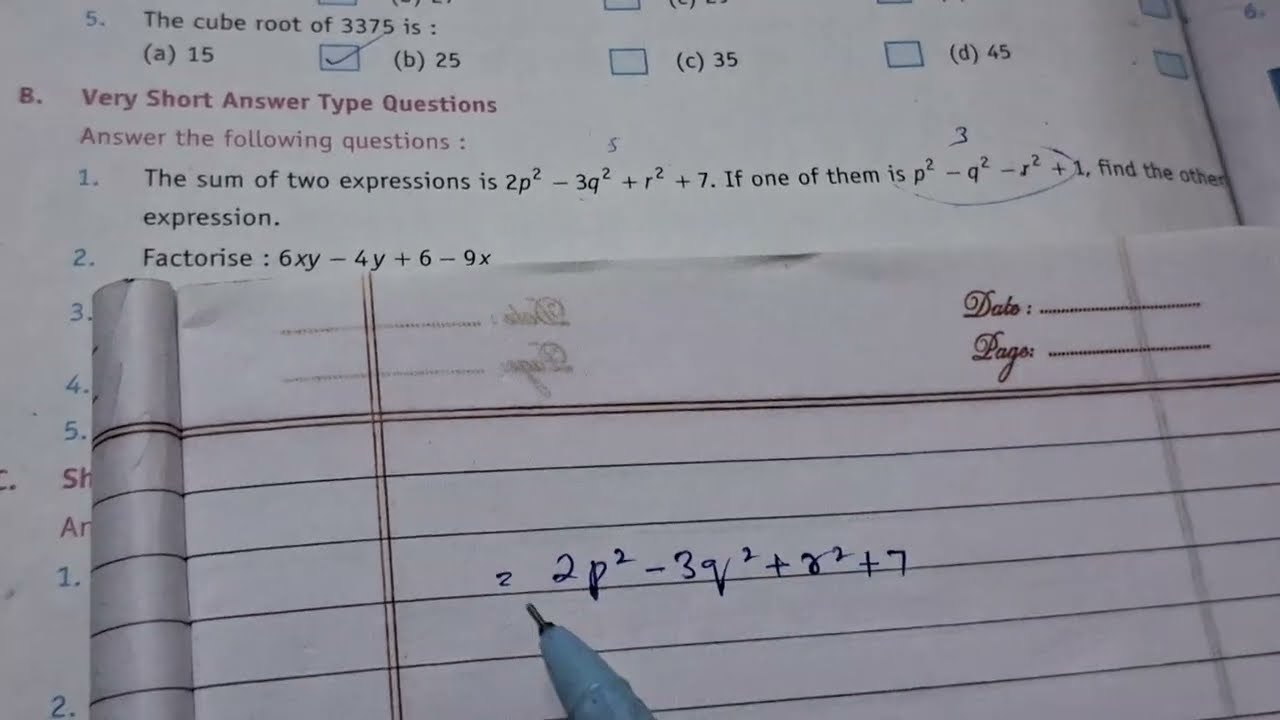 5. The cube root of 3375 is :
(a) 15 (b) 25 (c) 35 (d) 45
6.
B. Very Short Answer Type Questions
Answer the following questions :
5 3
1. The sum of two expressions is 2p² − 3q² + r² + 7. If one of them is p² − q² − r² + 1, find the other
expression.
2. Factorise : 6xy − 4y + 6 − 9x
3.
Date :
Page:
4.
5.
C. Sh
An
1. = 2p² − 3q² + r² + 7
2.